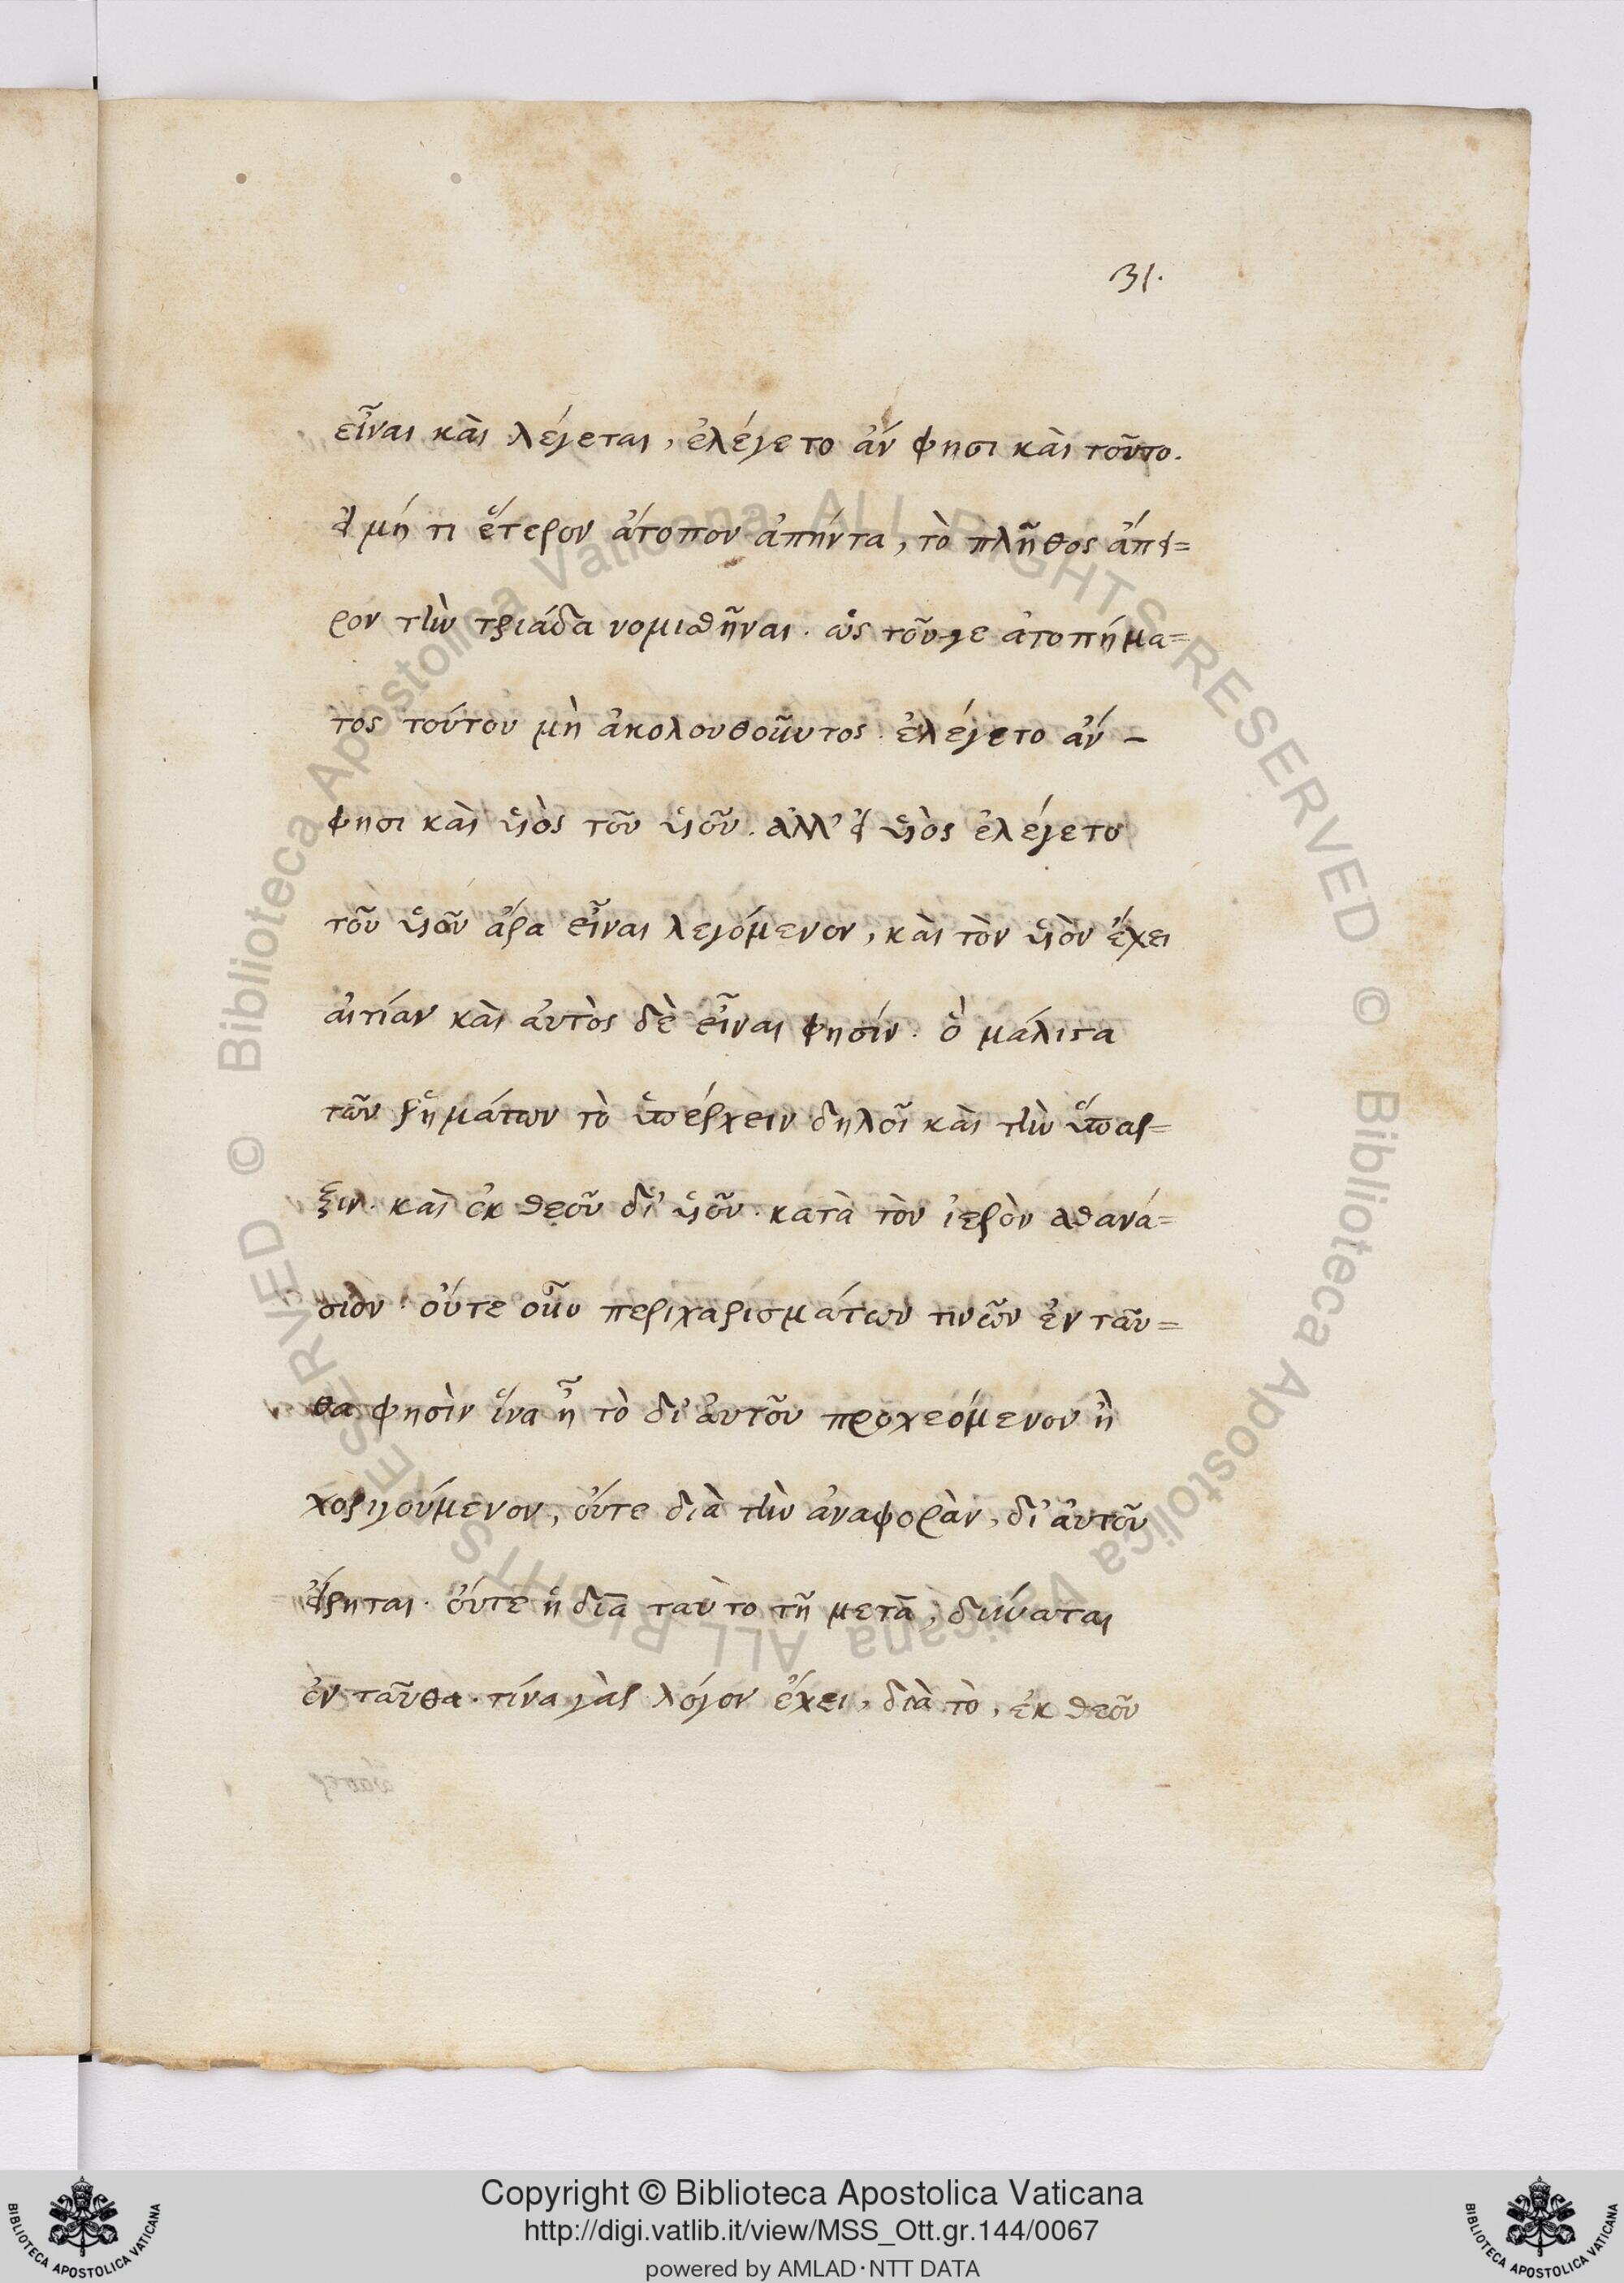 31.
εἶναι καὶ λέγεται, ἐλέγετο ἄν φησι καὶ τοῦτο.
εἰ μή τι ἕτερον ἄτοπον ἀπήντα, τὸ πλῆθος ἄπει=
ρον τὴν τριάδα νομισθῆναι. ὡς τοῦγε ἀτοπήμα=
τος τούτου μὴ ἀκολουθοῦντος ἐλέγετο ἄν -
φησι καὶ υἱὸς τοῦ υἱοῦ. ἀλλ' εἰ υἱὸς ἐλέγετο
τοῦ υἱοῦ ἄρα εἶναι λεγόμενον, καὶ τὸν υἱὸν ἔχει
αἰτίαν καὶ ἀυτὸς δὲ εἶναι φησίν. ὃ μάλιστα
τῶν ῥημάτων τὸ ὑπέρχειν δηλοῖ καὶ τὴν ὕπαρ=
ξιν. καὶ ἐκ θεοῦ δι' υἱοῦ. κατὰ τὸν ἱερὸν ἀθανά=
σιον. οὔτε οὖν περιχαρισμάτων τινῶν ἐν ταῦ=
θα φησὶν ἵνα ᾖ τὸ δι' ἀυτοῦ προχεόμενον ἢ
χοριγούμενον, οὔτε διὰ τὴν ἀναφορὰν, δι' ἀυτοῦ
εἴρηται. οὔτε ἡ διὰ ταὐτο τῇ μετὰ, δύναται
ἐν ταῦθα. τίνα γὰρ λόγον ἔχει, διὰ τὸ, ἐκ θεοῦ
Copyright © Biblioteca Apostolica Vaticana
http://digi.vatlib.it/view/MSS_Ott.gr.144/0067
powered by AMLAD·NTT DATA
BIBLIOTECA APOSTOLICA VATICANA
BIBLIOTECA APOSTOLICA VATICANA
© Biblioteca Apostolica Vaticana ALL RIGHTS RESERVED
© Biblioteca Apostolica Vaticana ALL RIGHTS RESERVED